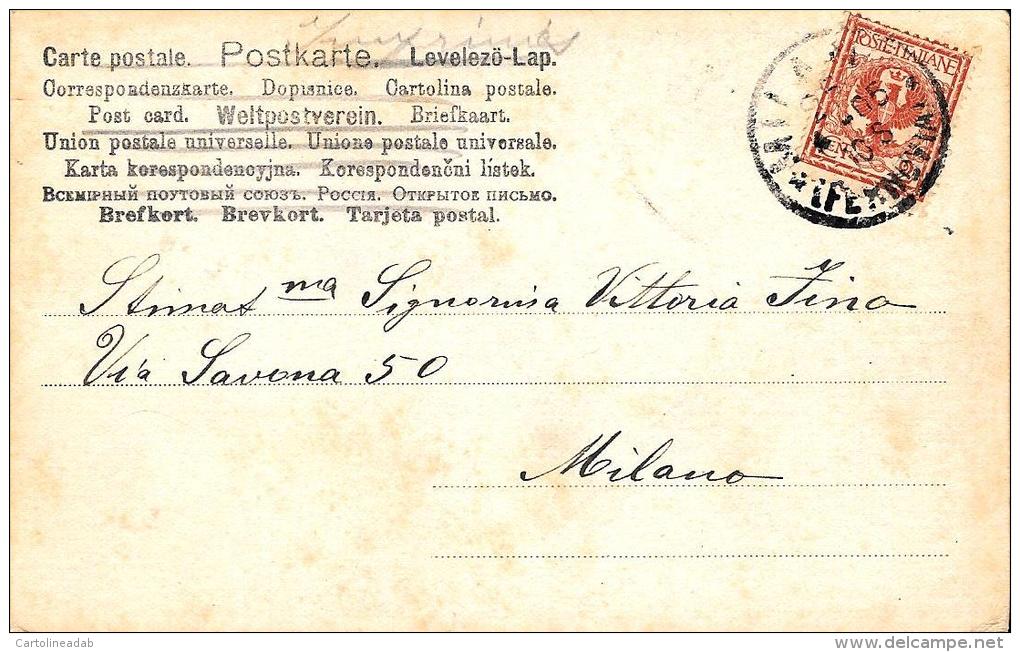 Imprimés
Carte postale. Postkarte. Levelezö-Lap.
Correspondenzkarte. Dopisnice. Cartolina postale.
Post card. Weltpostverein. Briefkaart.
Union postale universelle. Unione postale universale.
Karta korespondencyjna. Korespondenční lístek.
Всемірный поутовый союзъ. Россія. Открытое письмо.
Brefkort. Brevkort. Tarjeta postal.
POSTE ITALIANE
Stimat ma Signorina Vittoria Fino
Via Savona 50
Milano
Cartolineadab
delcampe.net